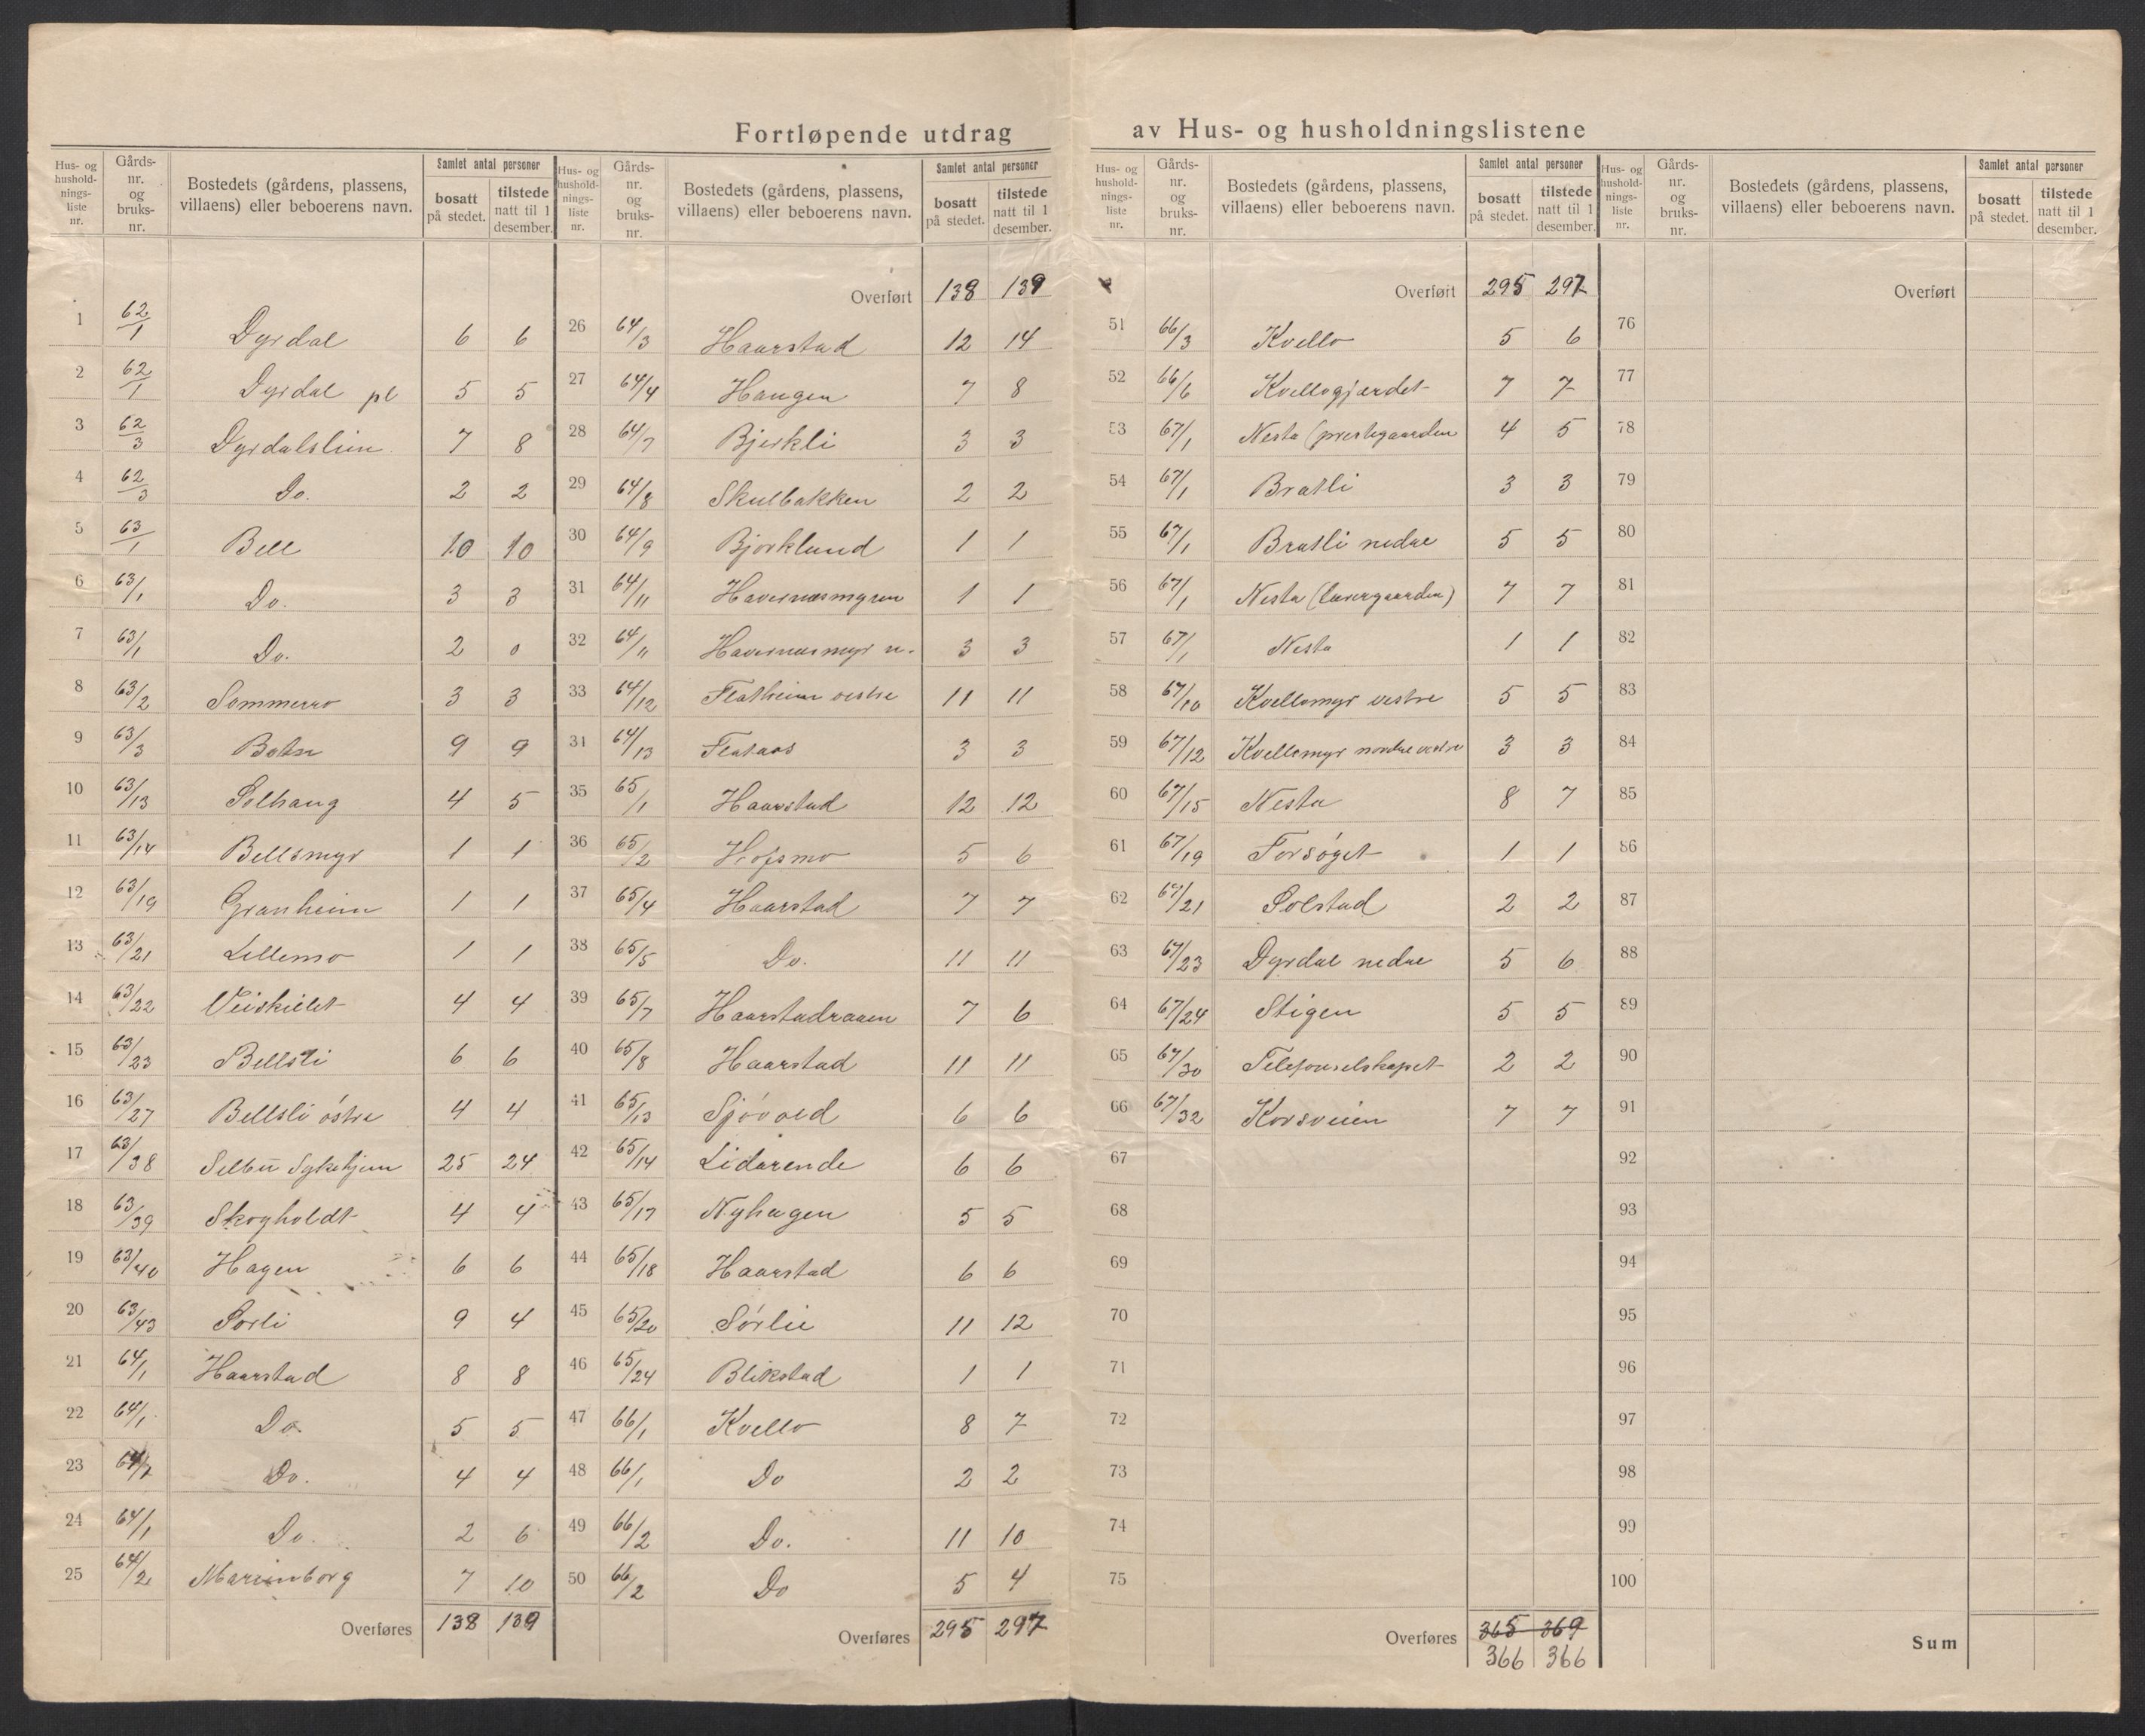 Fortløpende utdrag av Hus- og husholdningslistene
Hus- og hushold- nings- liste nr. | Gårds- nr. og bruks- nr. | Bostedets (gårdens, plassens, villaens) eller beboerens navn. | Samlet antal personer | bosatt på stedet. | tilstede natt til 1 desember.
1 62/1 Dyrdal 6 6
2 62/1 Dyrdal pl 5 5
3 62/3 Dyrdalslien 7 8
4 62/3 Do. 2 2
5 63/1 Bell 10 10
6 63/1 Do. 3 3
7 63/1 Do. 2 0
8 63/2 Sommerro 3 3
9 63/3 9 9
10 63/13 Solhaug 4 5
11 63/14 Bellsmyr 1 1
12 63/19 Granheim 1 1
13 63/21 Lillemo 1 1
14 63/22 Veiskillet 4 4
15 63/23 Bellsli 6 6
16 63/27 Bellsli östre 4 4
17 63/38 Selbu Sykehjem 25 24
18 63/39 Skogholdt 4 4
19 63/40 Hagen 6 6
20 63/43 Sorli 9 4
21 64/1 Haarstad 8 8
22 64/1 Do. 5 5
23 64/1 Do. 4 4
24 64/1 Do. 2 6
25 64/2 Marienborg 7 10
Overføres 138 139
Hus- og hushold- nings- liste nr. | Gårds- nr. og bruks- nr. | Bostedets (gårdens, plassens, villaens) eller beboerens navn. | Samlet antal personer | bosatt på stedet. | tilstede natt til 1 desember.
Overført 138 139
26 64/3 Haarstad 12 14
27 64/4 Haugen 7 8
28 64/7 Bjerkli 3 3
29 64/8 Skulbakken 2 2
30 64/9 Bjorklund 1 1
31 64/11 Havernæsmyren 1 1
32 64/11 Havernæsmyr n. 3 3
33 64/12 Flatheim vestre 11 11
34 64/13 Flataas 3 3
35 65/1 Haarstad 12 12
36 65/2 Hofsmo 5 6
37 65/4 Haarstad 7 7
38 65/5 Do. 11 11
39 65/7 Haarstadraaen 7 6
40 65/8 Haarstad 11 11
41 65/13 Sjövold 6 6
42 65/14 Lidarende 6 6
43 65/17 Nyhagen 5 5
44 65/18 Haarstad 6 6
45 65/20 Sørlie 11 12
46 65/24 Blikstad 1 1
47 66/1 Kvello 8 7
48 66/1 Do 2 2
49 66/2 Do. 11 10
50 66/2 Do 5 4
Overføres 295 297
Hus- og hushold- nings- liste nr. | Gårds- nr. og bruks- nr. | Bostedets (gårdens, plassens, villaens) eller beboerens navn. | Samlet antal personer | bosatt på stedet. | tilstede natt til 1 desember.
Overført 295 297
51 66/3 Kvello 5 6
52 66/6 Kvellogjærdet 7 7
53 67/1 Nesta (prestegaarden 4 5
54 67/1 Bratli 3 3
55 67/1 Bratli nedre 5 5
56 67/1 Nesta 7 7
57 67/1 Nesta 1 1
58 67/10 Kvellomyr vestre 5 5
59 67/12 Kvellomyr nordre vestre 3 3
60 67/15 Nesta 8 7
61 67/19 Forsöget 1 1
62 67/21 Solstad 2 2
63 67/23 Dyrdal nedre 5 6
64 67/24 Stigen 5 5
65 67/30 Telefonselskapet 2 2
66 67/32 Korsveien 7 7
67
68
69
70
71
72
73
74
75
Overføres 365 369
366 366
Hus- og hushold- nings- liste nr. | Gårds- nr. og bruks- nr. | Bostedets (gårdens, plassens, villaens) eller beboerens navn. | Samlet antal personer | bosatt på stedet. | tilstede natt til 1 desember.
Overført
76
77
78
79
80
81
82
83
84
85
86
87
88
89
90
91
92
93
94
95
96
97
98
99
100
Sum